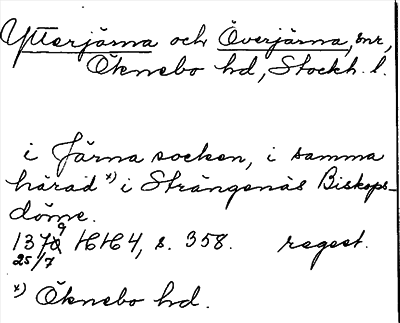 Ytterjärna och Överjärna, snr,
Öknebo hd, Stockh. l.
i Järna socken, i samma
härad x) i Strängenäs Biskops-
döme.
1379 HH4, s. 358. regest.
25/7
x) Öknebo hd.